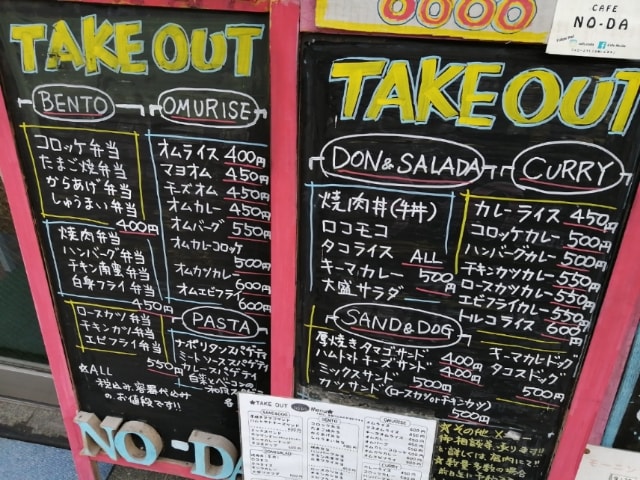 TAKE OUT
BENTO
コロッケ弁当
たまご焼弁当
からあげ弁当
しゅうまい弁当
400円
焼肉弁当
ハンバーグ弁当
チキン南蛮弁当
白身フライ弁当
450円
ロースカツ弁当
チキンカツ弁当
エビフライ弁当
550円
☆ALL
税込み、容器代込み
のお値段です!!
OMURISE
オムライス 400円
マヨオム 450円
チーズオム 450円
オムカレー 450円
オムバーグ 550円
オムカレーコロッケ
500円
オムカツカレー
600円
オムエビフライ
600円
PASTA
ナポリタンスパゲティ
ミートソーススパゲティ
カレースパゲティ
白菜とベーコンの
NO-DA
CAFE
NO-DA
TAKE OUT
DON&SALADA
焼肉丼(牛丼)
ロコモコ
タコライス
キーマカレー
大盛サラダ
ALL
500円
CURRY
カレーライス 450円
コロッケカレー 500円
ハンバーグカレー 500円
チキンカツカレー 550円
ロースカツカレー 550円
エビフライカレー 550円
トルコライス 600円
SAND&DOG
厚焼きタマゴサンド 400円
ハムトマトチーズサンド 400円
ミックスサンド 500円
カツサンド(ロースカツorチキンカツ)
500円
キーマカレードッグ
タコスドッグ
500円
☆その他
御相談等承ります!!
詳しくは店内にて!!
☆数量多数の場合
TAKE OUT Menu
BENTO
OMURISE
CURRY